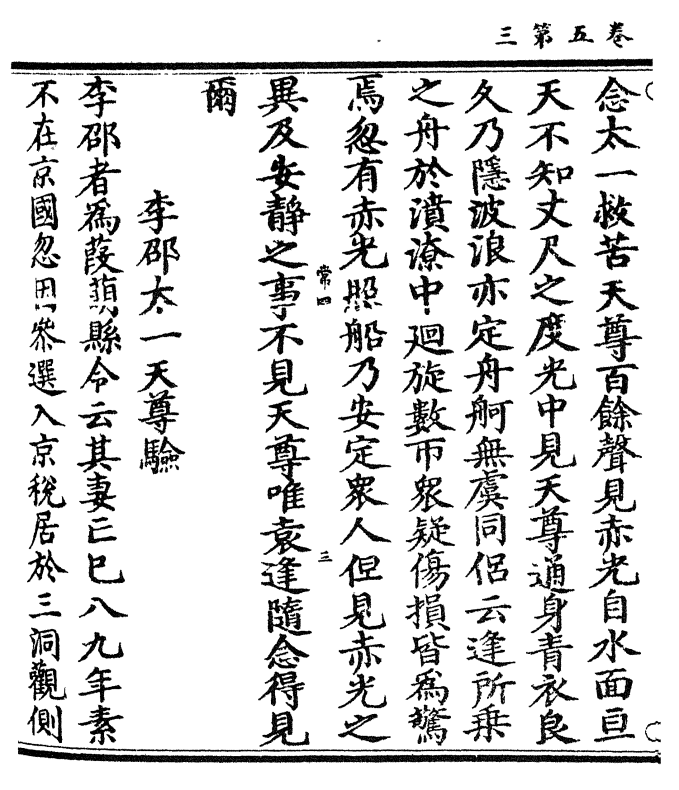 卷五第三
念太一救苦天尊百餘聲見赤光自水面亘
天不知丈尺之度光中見天尊通身青衣良
久乃隱波浪亦定舟舸無虞同侶云逢所乗
之舟於濆潦中廻旋數帀衆疑傷損皆爲驚
焉忽有赤光照船乃安定衆人但見赤光之
常四
三
異及安靜之事不見天尊唯袁逢隨念得見
爾
李邵太一天尊驗
李邵者爲葭萌縣令云其妻亡巳八九年素
不在京國忽因參選入京稅居於三洞觀側